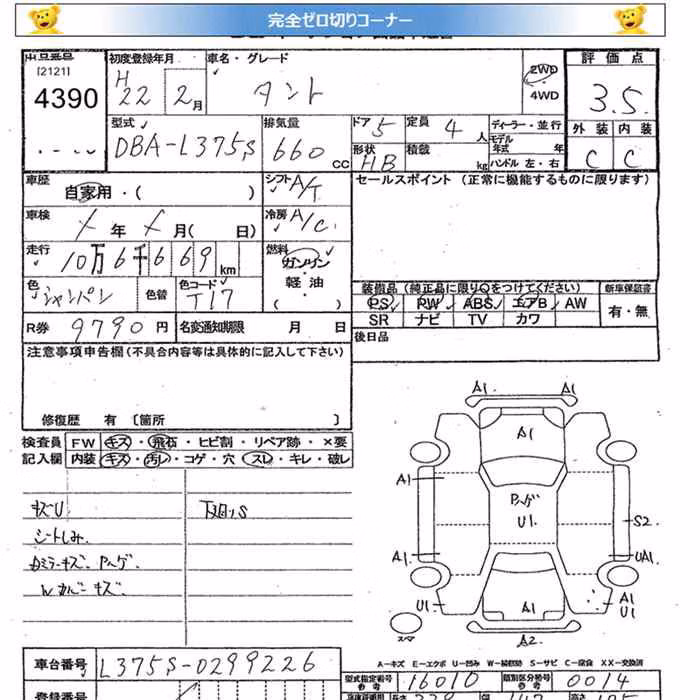 完全ゼロ切りコーナー
出品番号
[2121]
4390
初度登録年月
H
22 2月
車名・グレード
タント
2WD
・
4WD
評価点
3.5
外装 内装
C C
型式
DBA-L375S
排気量
660 CC
ドア 5
形状 HB
定員 4 人
積載 kg
ディーラー・並行
モデル年式 年
ハンドル 左・右
車歴
自家用・( )
シフト A/T
セールスポイント (正常に機能するものに限ります)
車検
年 月( 日)
冷房 A/C
走行
10万6千669km
燃料
ガソリン
・
軽油
( )
色 シャンパン
色替
色コード T17
装備品 (純正品に限り○をつけてください)
新車保証書
PS PW ABS エアB AW
SR ナビ TV カワ
有・無
R券 9790円
名変通知期限 月 日
後日品
注意事項申告欄(不具合内容等は具体的に記入して下さい)
修復歴 有 〔箇所 〕
検査員
記入欄
FW キズ・飛石・ヒビ割・リペア跡・×要
内装 キズ・汚レ・コゲ・穴・スレ・キレ・破レ
キズU
シートしみ
下廻りS
A1 A1
A1
A1
ハゲ
U1
S2
A1
UA1
U1
A1
A1
U1
A2
スペア
A-キズ E-エクボ U-凹み W-補修跡 S-サビ C-腐食 XX-交換済
車台番号 L375S-0299226
型式指定番号 16010
類別区分番号 0014
登録番号